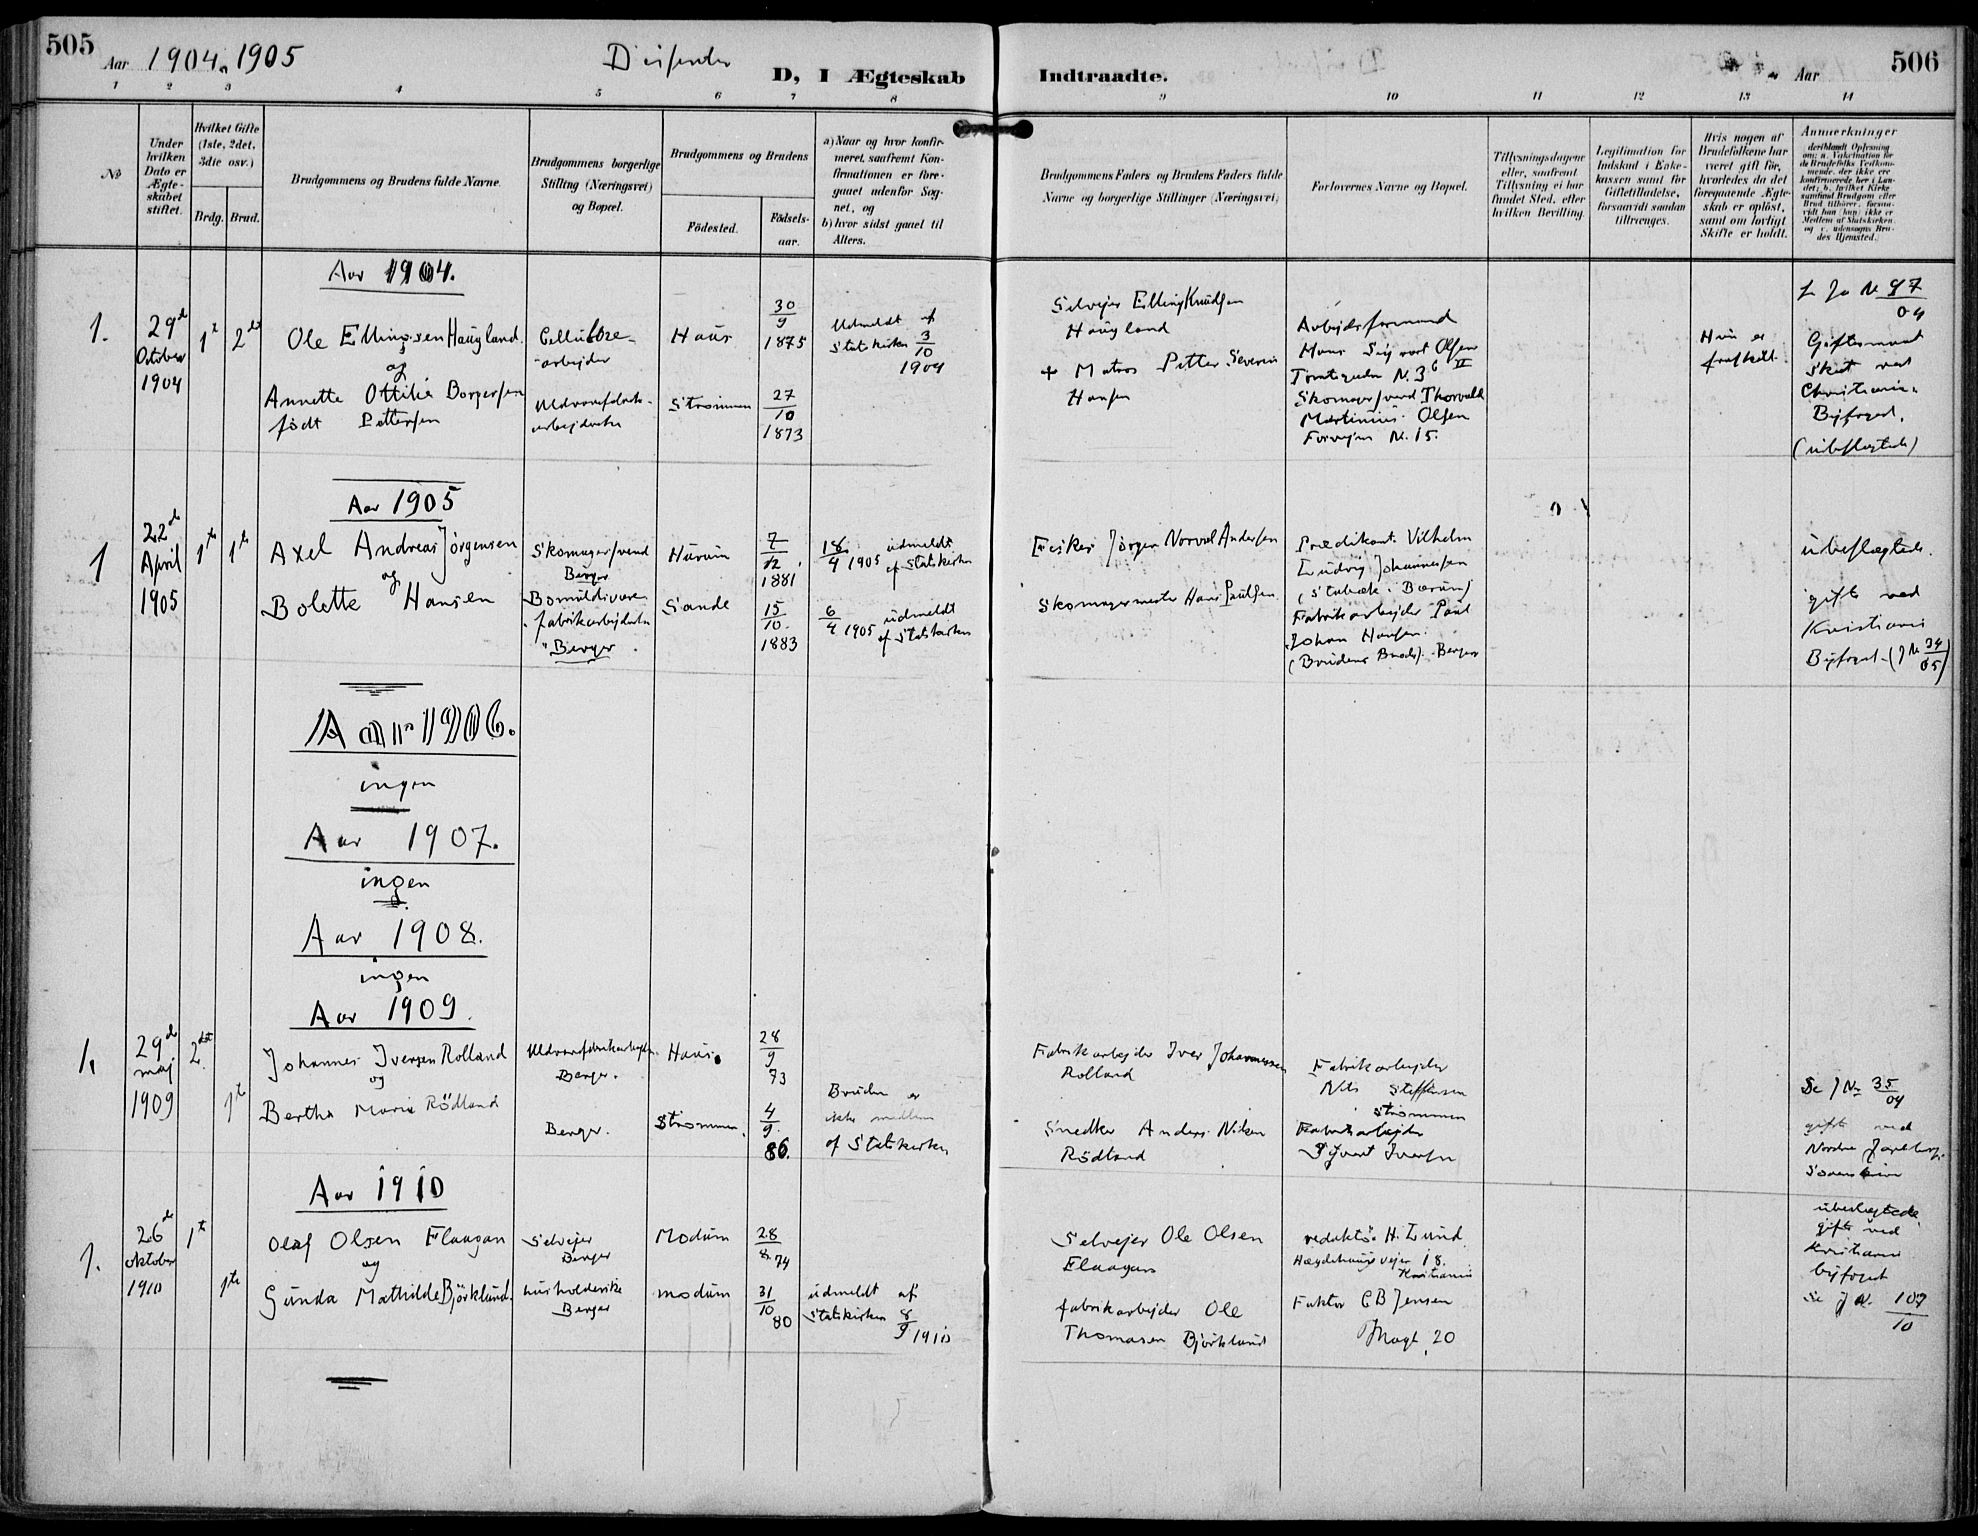 505
Aar 1904, 1905
D, I Ægteskab
Indtraadte.
Aar
506
1 2 3 4 5 6 7 8 9 10 11 12 13 14
No
Under
hvilken
Dato er
Ægte-
skabet
stiftet.
Hvilket Gifte
(1ste, 2det,
3die osv.)
Brdg. Brud.
Brudgommens og Brudens fulde Navne.
Brudgommens borgerlige
Stilling (Næringsvei)
og Bopæl.
Brudgommens og Brudens
Födested.
Födsels-
aar.
a) Naar og hvor konfir-
meret, saafremt Kon-
firmationen er fore-
gaaet udenfor Sog-
net, og
b) hvor sidst gaaet til
Alters.
Brudgommens Faders og Brudens Faders fulde
Navne og borgerlige Stillinger (Næringsvei)
Forlovernes Navne og Bopæl.
Tillysningsdagene
eller, saafremt
Tillysning ei har
fundet Sted, efter
hvilken Bevilling.
Legitimation for
Indskud i Enke-
kassen samt for
Giftetilladelse,
forsaavidt saadan
tiltrænges.
Hvis nogen af
Brudefolkene har
været gift för,
hvorledes da det
foregaaende Ægte-
skab er oplöst,
samt om lovligt
Skifte er holdt.
Anmerkninger
deriblandt Oplysning
om: a. Vakcination for
de Brudefolks Vedkom-
mende, der ikke ere
konfirmerede her i Lan-
det; b. hvilket Kirke-
samfund Brudgom eller
Brud tilhörer, forsaa-
vidt han (hun) ikke er
Medlem af Statskirken,
og c. udensogns Bru-
des Hjemsted.
Aar 1904.
1.
29de
October
1904
1t 2det
Ole Ellingsen Haugland
og
Annette Ottilie Borgersen
födt Pettersen
Cellulose-
arbejder
Uldvarefabrik-
arbejderske
Haus
Strömmen
30/9
1875
27/10
1873
Udmeldt af
Statskirken 3/10
1904
Selvejer Elling Knudsen
Haugland
+ Matros Petter Severin
Hansen
Arbejdsformand
Hans Sigvart Olsen
Tomtegaden N. 36 II
Skomagersvend Thorvald
Martinius Olsen
N. 15.
Hun er
fraskilt.
Jo N 97/04
Giftermaal
skeet ved
Christiania
Byfoged.
(ubeslægtede)
Aar 1905
1
22de
April
1905
1te 1te
Axel Andreas Jörgensen
og
Bolette Hansen
Skomagersvend
Berger
Bomuldsvare
fabrikarbejderske
Berger
Hurum
Sande
7/12
1881
15/10
1883
18/4 1905 udmeldt
af Statskirken
6/4 1905 udmeldt
af Statskirken
Fisker Jörgen Norval Andersen
Skomagermester Hans Paulsen
Prædikant Vilhelm
Ludvig Johannessen
(Stabæk i Bærum)
Fabrikarbejder Paul
Johan Hansen
(Brudens Broder) Berger
ubeslægtede.
gift ved
Kristiania
Byfoged (J N 34/05)
Aar 1906.
ingen
Aar 1907.
ingen
Aar 1908.
ingen
Aar 1909.
1.
29de
maj
1909
2det
1te
Johannes Iversen Rolland
og
Bertha Marie Rödland
Uldvarefabrikarbejder
Berger.
Berger.
Haus.
Strömmen.
28/9
73
4/9
86.
Bruden er
ikke medlem
af Statskirken
Fabrikarbejder Iver Johannessen
Rolland
Snedker Anders Nilsen
Rödland
Fabrikarbejder
Nils Steffensen
Strömmen
Fabrikarbejder
Sjvert Iversen
Se J Nr 35/09
gift ved
Nordre Jarlsberg
Sorenskriver
Aar 1910
1.
26de
oktober
1910
1te
1te
Olaf Olsen Flaagan
og
Gunda Mathilde Björklund.
Selvejer
Berger
husholderske
Berger
Modum
modum
28/8 74
31/10 80
udmeldt af
Statskirken 8/9 1910
Selvejer Ole Olsen
Flaagan
fabrikarbejder Ole
Thomasen Björklund
redaktör H. Lund
Hægdehaugsvejen 18.
Kristiania
Faktor C B Jensen
20
ubeslegtede
gift ved
Kristiania
byfoged
Se J N. 107/10